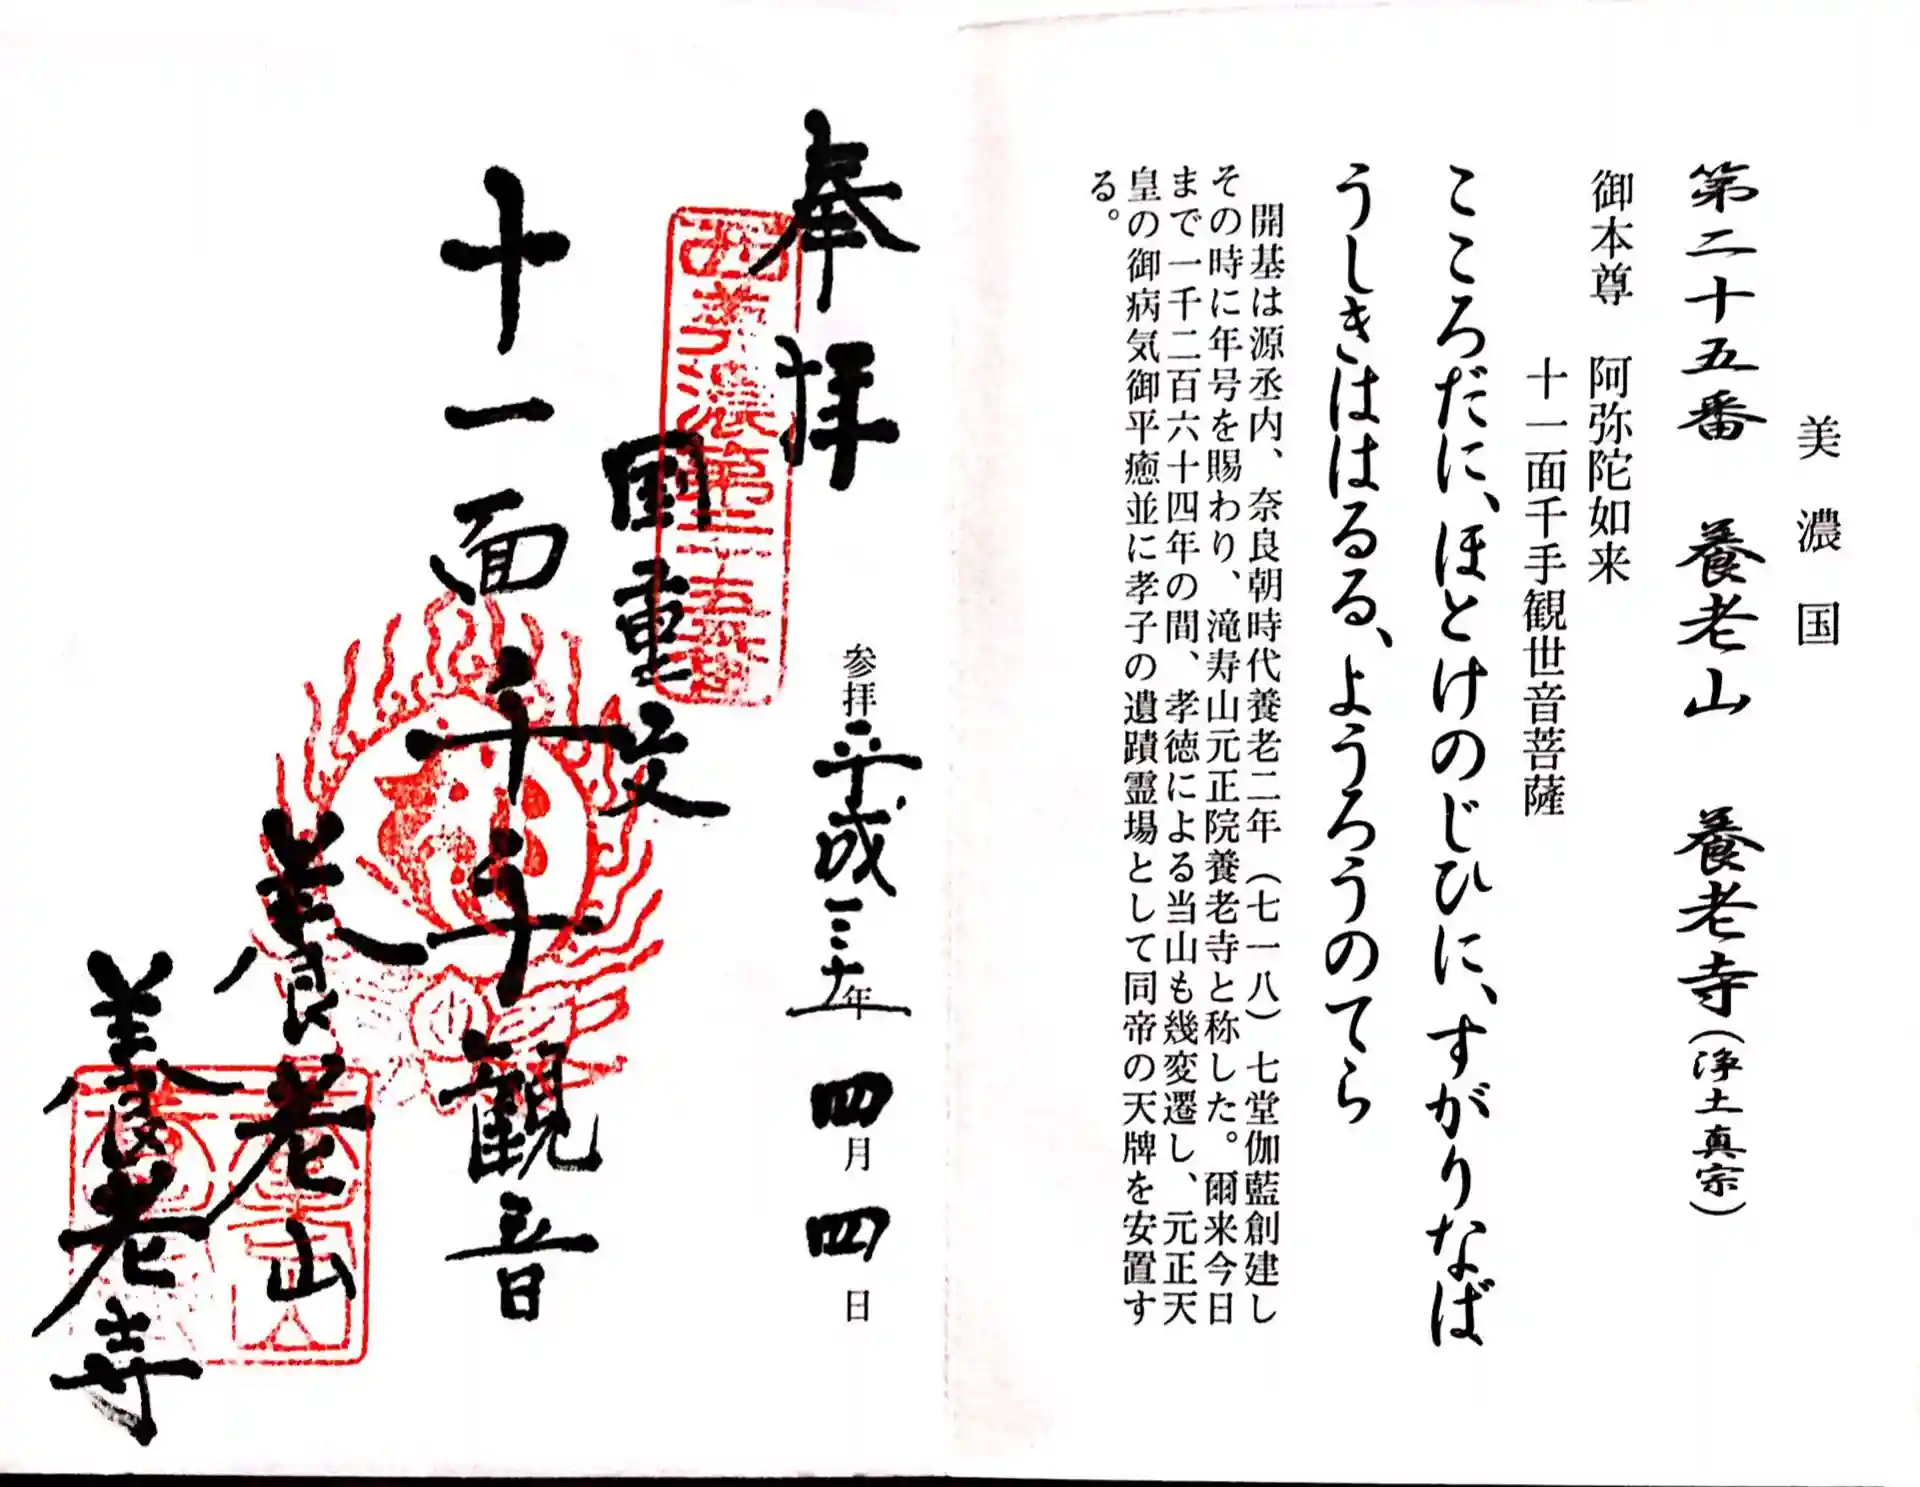 美濃国
第二十五番　養老山　養老寺(浄土真宗)
御本尊　阿弥陀如来
十一面千手観世音菩薩
こころだに、ほとけのじひに、すがりなば
うしきははるる、ようろうのてら
開基は源丞内、奈良朝時代養老二年(七一八)七堂伽藍創建し
その時に年号を賜わり、滝寿山元正院養老寺と称した。爾来今日
まで一千二百六十四年の間、孝徳による当山も幾変遷し、元正天
皇の御病気御平癒並に孝子の遺蹟霊場として同帝の天牌を安置す
る。
奉拝
参拝平成三十年四月四日
西美濃第二十五番
国重文
十一面千手観音
養老山
養老寺